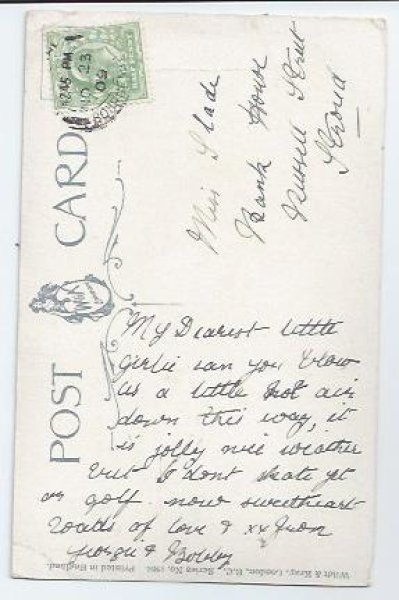 POST CARD
12.45 PM
NO 23
09
Miss Slade
Bank House
Russell Street
Stroud
My Dearest little
girlie can you throw
us a little hot air
down this way, it
is jolly nice weather
but I don't skate yet
or golf. now sweetheart
loads of love & xx from
Georgie & Bobby
Wildt & Kray, London, E.C. Series No. Printed in England.